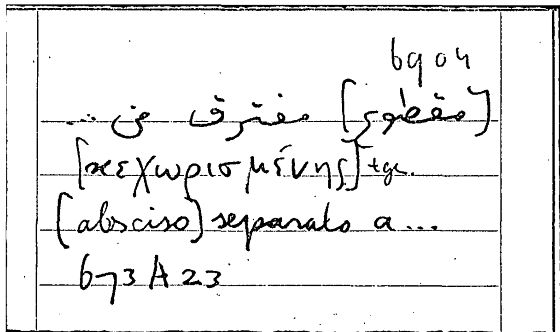 6904
[مقطوع] مفترق من ...
[κεχωρισμένης]
[absciso] separato a ...
673A23